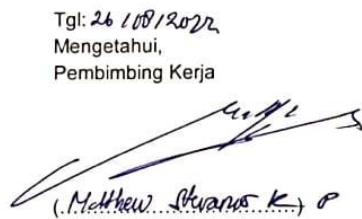 Tgl: 26/08/2022
Mengetahui,
Pembimbing Kerja
(Matthew K)